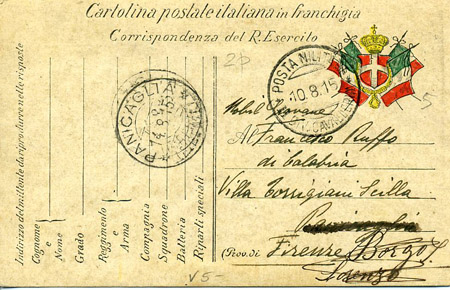 Cartolina postale italiana in franchigia
Corrispondenza del R. Esercito
POSTA MILIT
10.8.15
CAVALL
PANICAGLIA
FIRENZE
Nobil Giovane
Francesco Ruffo
di Calabria
Villa Torrigiani Scilla
Panicaglia
(Prov. di Firenze) Borgo S.
Lorenzo
Indirizzo del mittente da riprodurre nelle risposte
Cognome e Nome
Grado
Reggimento e Arma
Compagnia
Squadrone
Batteria
Riparti speciali
V 5-
5